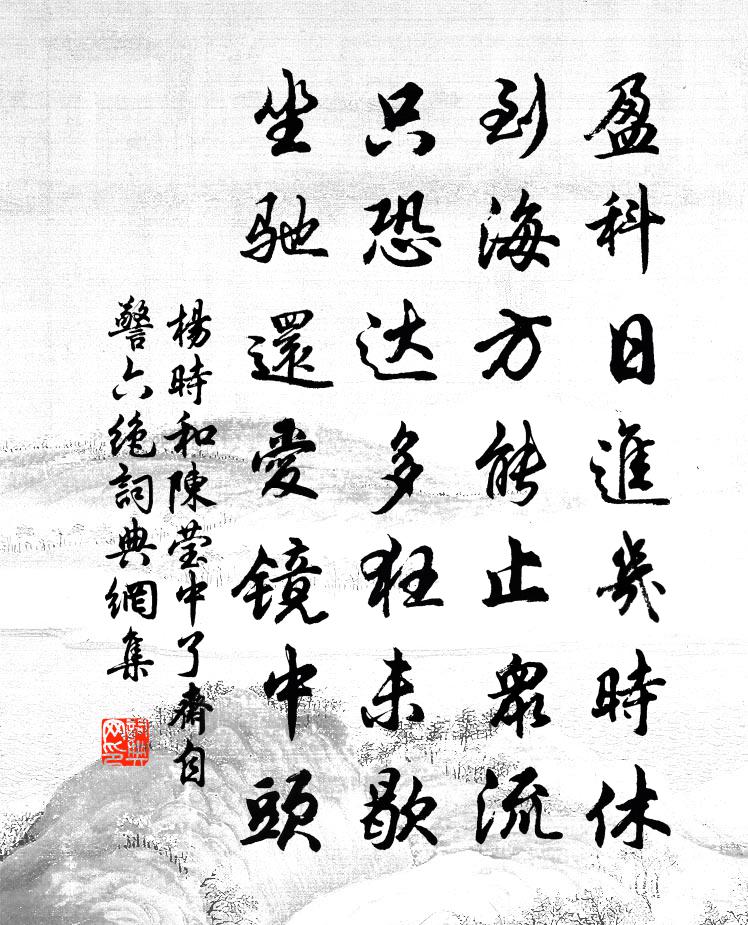 盈科日進幾時休
到海方能止衆流
只恐达多狂未歇
坐驰還愛鏡中頭
楊時和陳瑩中了齋自
警六絶詞典網集